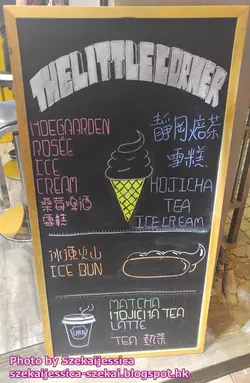 THE LITTLE CORNER
HOEGAARDEN
ROSÉE
ICE
CREAM
桑莓啤酒
雪糕
靜岡焙茶
雪糕
HOJICHA
TEA
ICE CREAM
冰凍火山
ICE BUN
MATCHA
HOJICHA TEA
LATTE
TEA 熱茶
Photo by Szekaijessica
szekaijessica-szekai.blogspot.hk